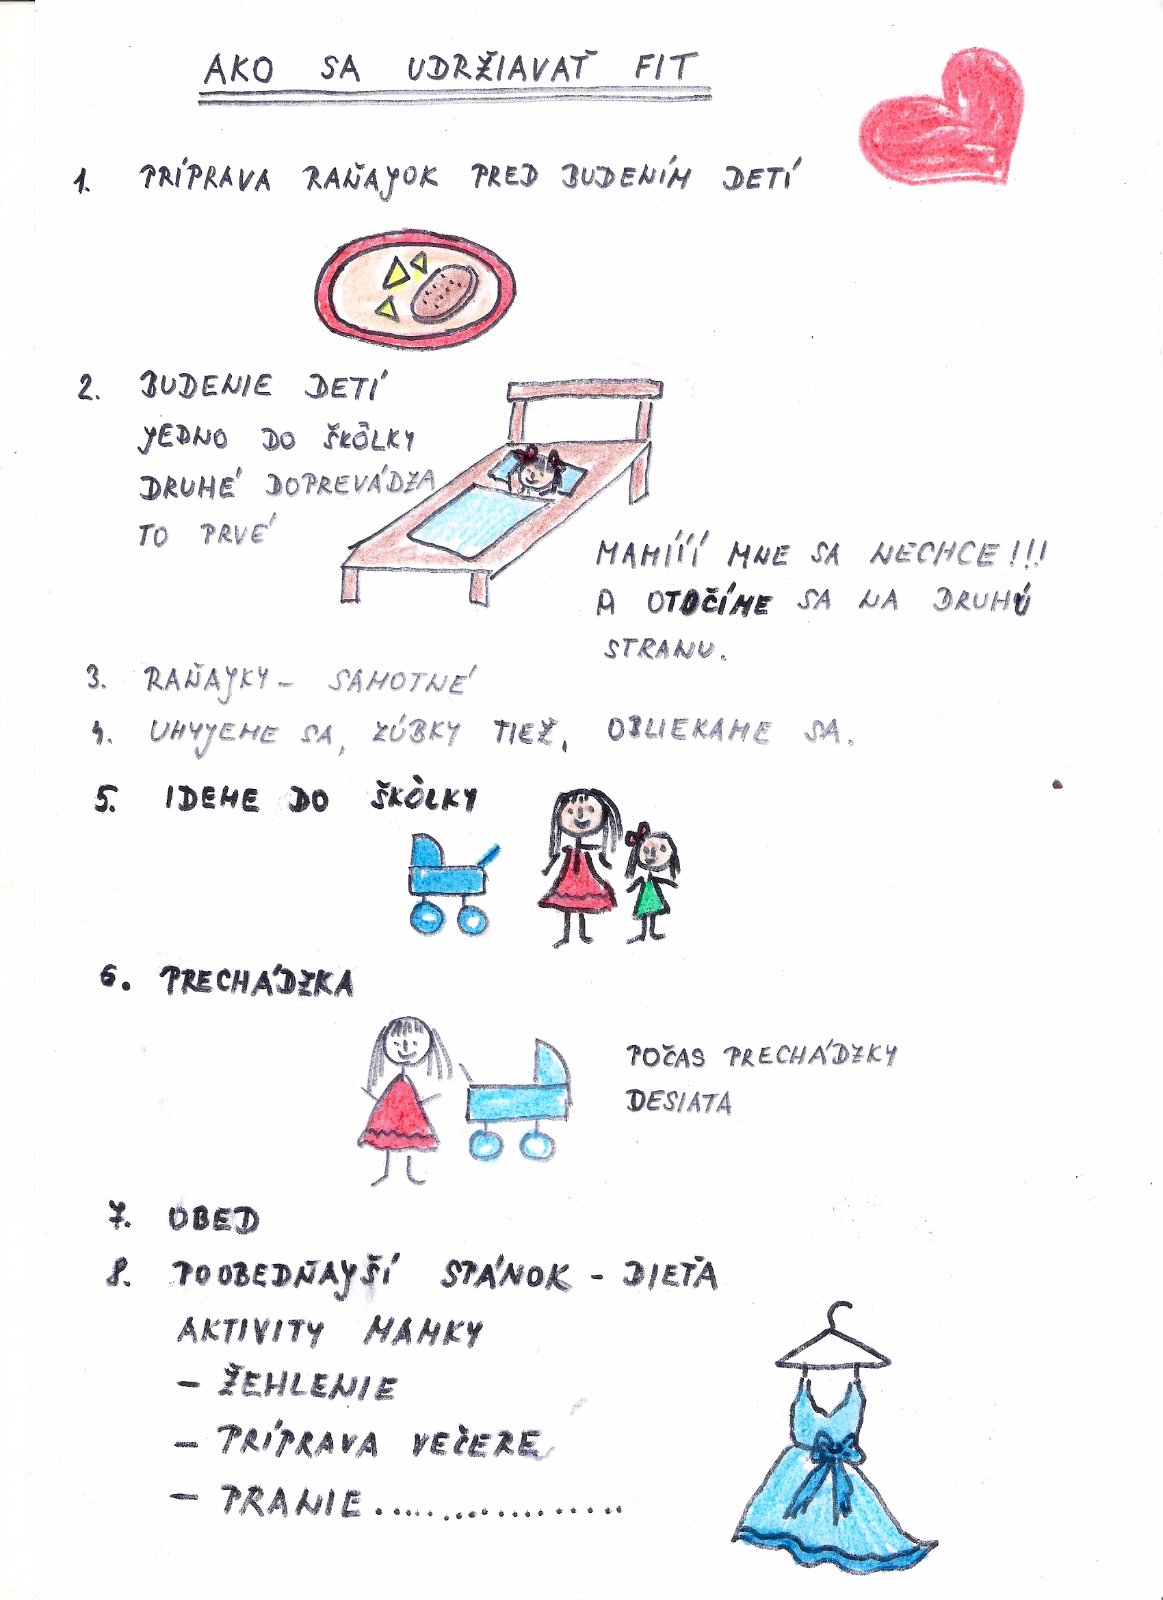 AKO SA UDRŽIAVAŤ FIT
1. PRÍPRAVA RAŇAJOK PRED BUDENÍM DETÍ
2. BUDENIE DETÍ
JEDNO DO ŠKÔLKY
DRUHÉ DOPREVÁDZA
TO PRVÉ
MAMÍÍÍ MNE SA NECHCE!!!
A OTOČÍME SA NA DRUHÚ
STRANU.
3. RAŇAJKY - SAMOTNÉ
4. UMYJEME SA, ZÚBKY TIEŽ, OBLIEKAME SA.
5. IDEME DO ŠKÔLKY
6. PRECHÁDZKA
POČAS PRECHÁDZKY
DESIATA
7. OBED
8. POOBEDŇAJŠÍ SPÁNOK - DIEŤA
AKTIVITY MAMKY
- ŽEHLENIE
- PRÍPRAVA VEČERE
- PRANIE...................